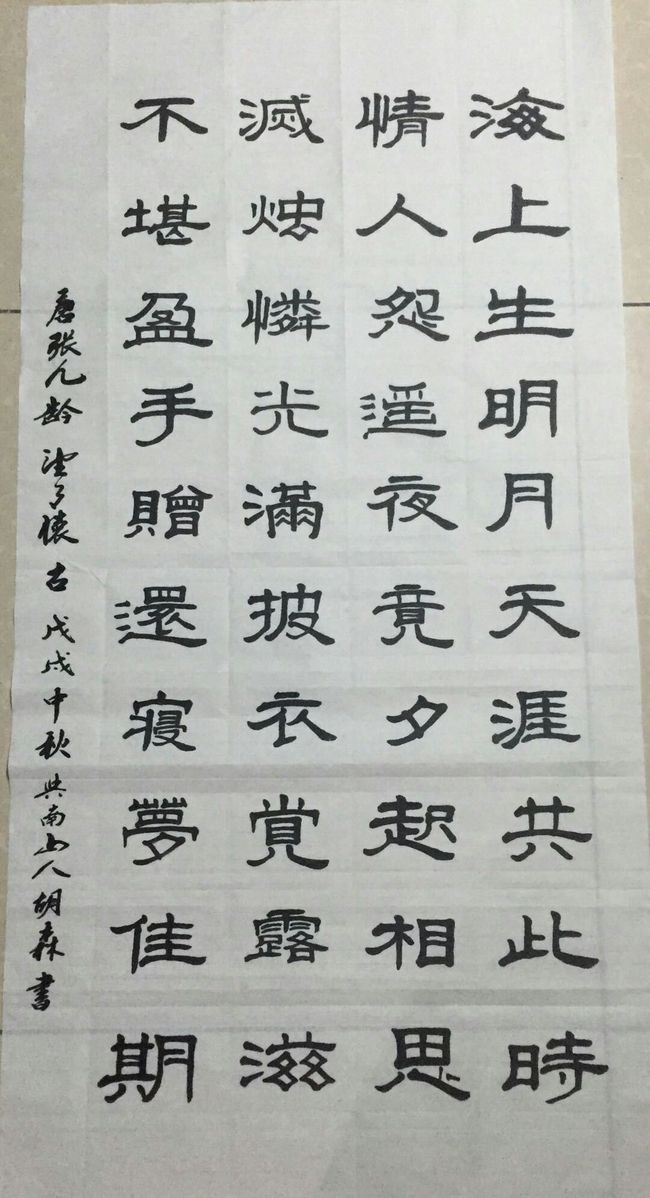 海上生明月天涯共此時
情人怨遥夜竟夕起相思
滅烛憐光滿披衣覚露滋
不堪盈手贈還寝夢佳期
唐張九龄望月懐古戊戌中秋典南山人胡森書